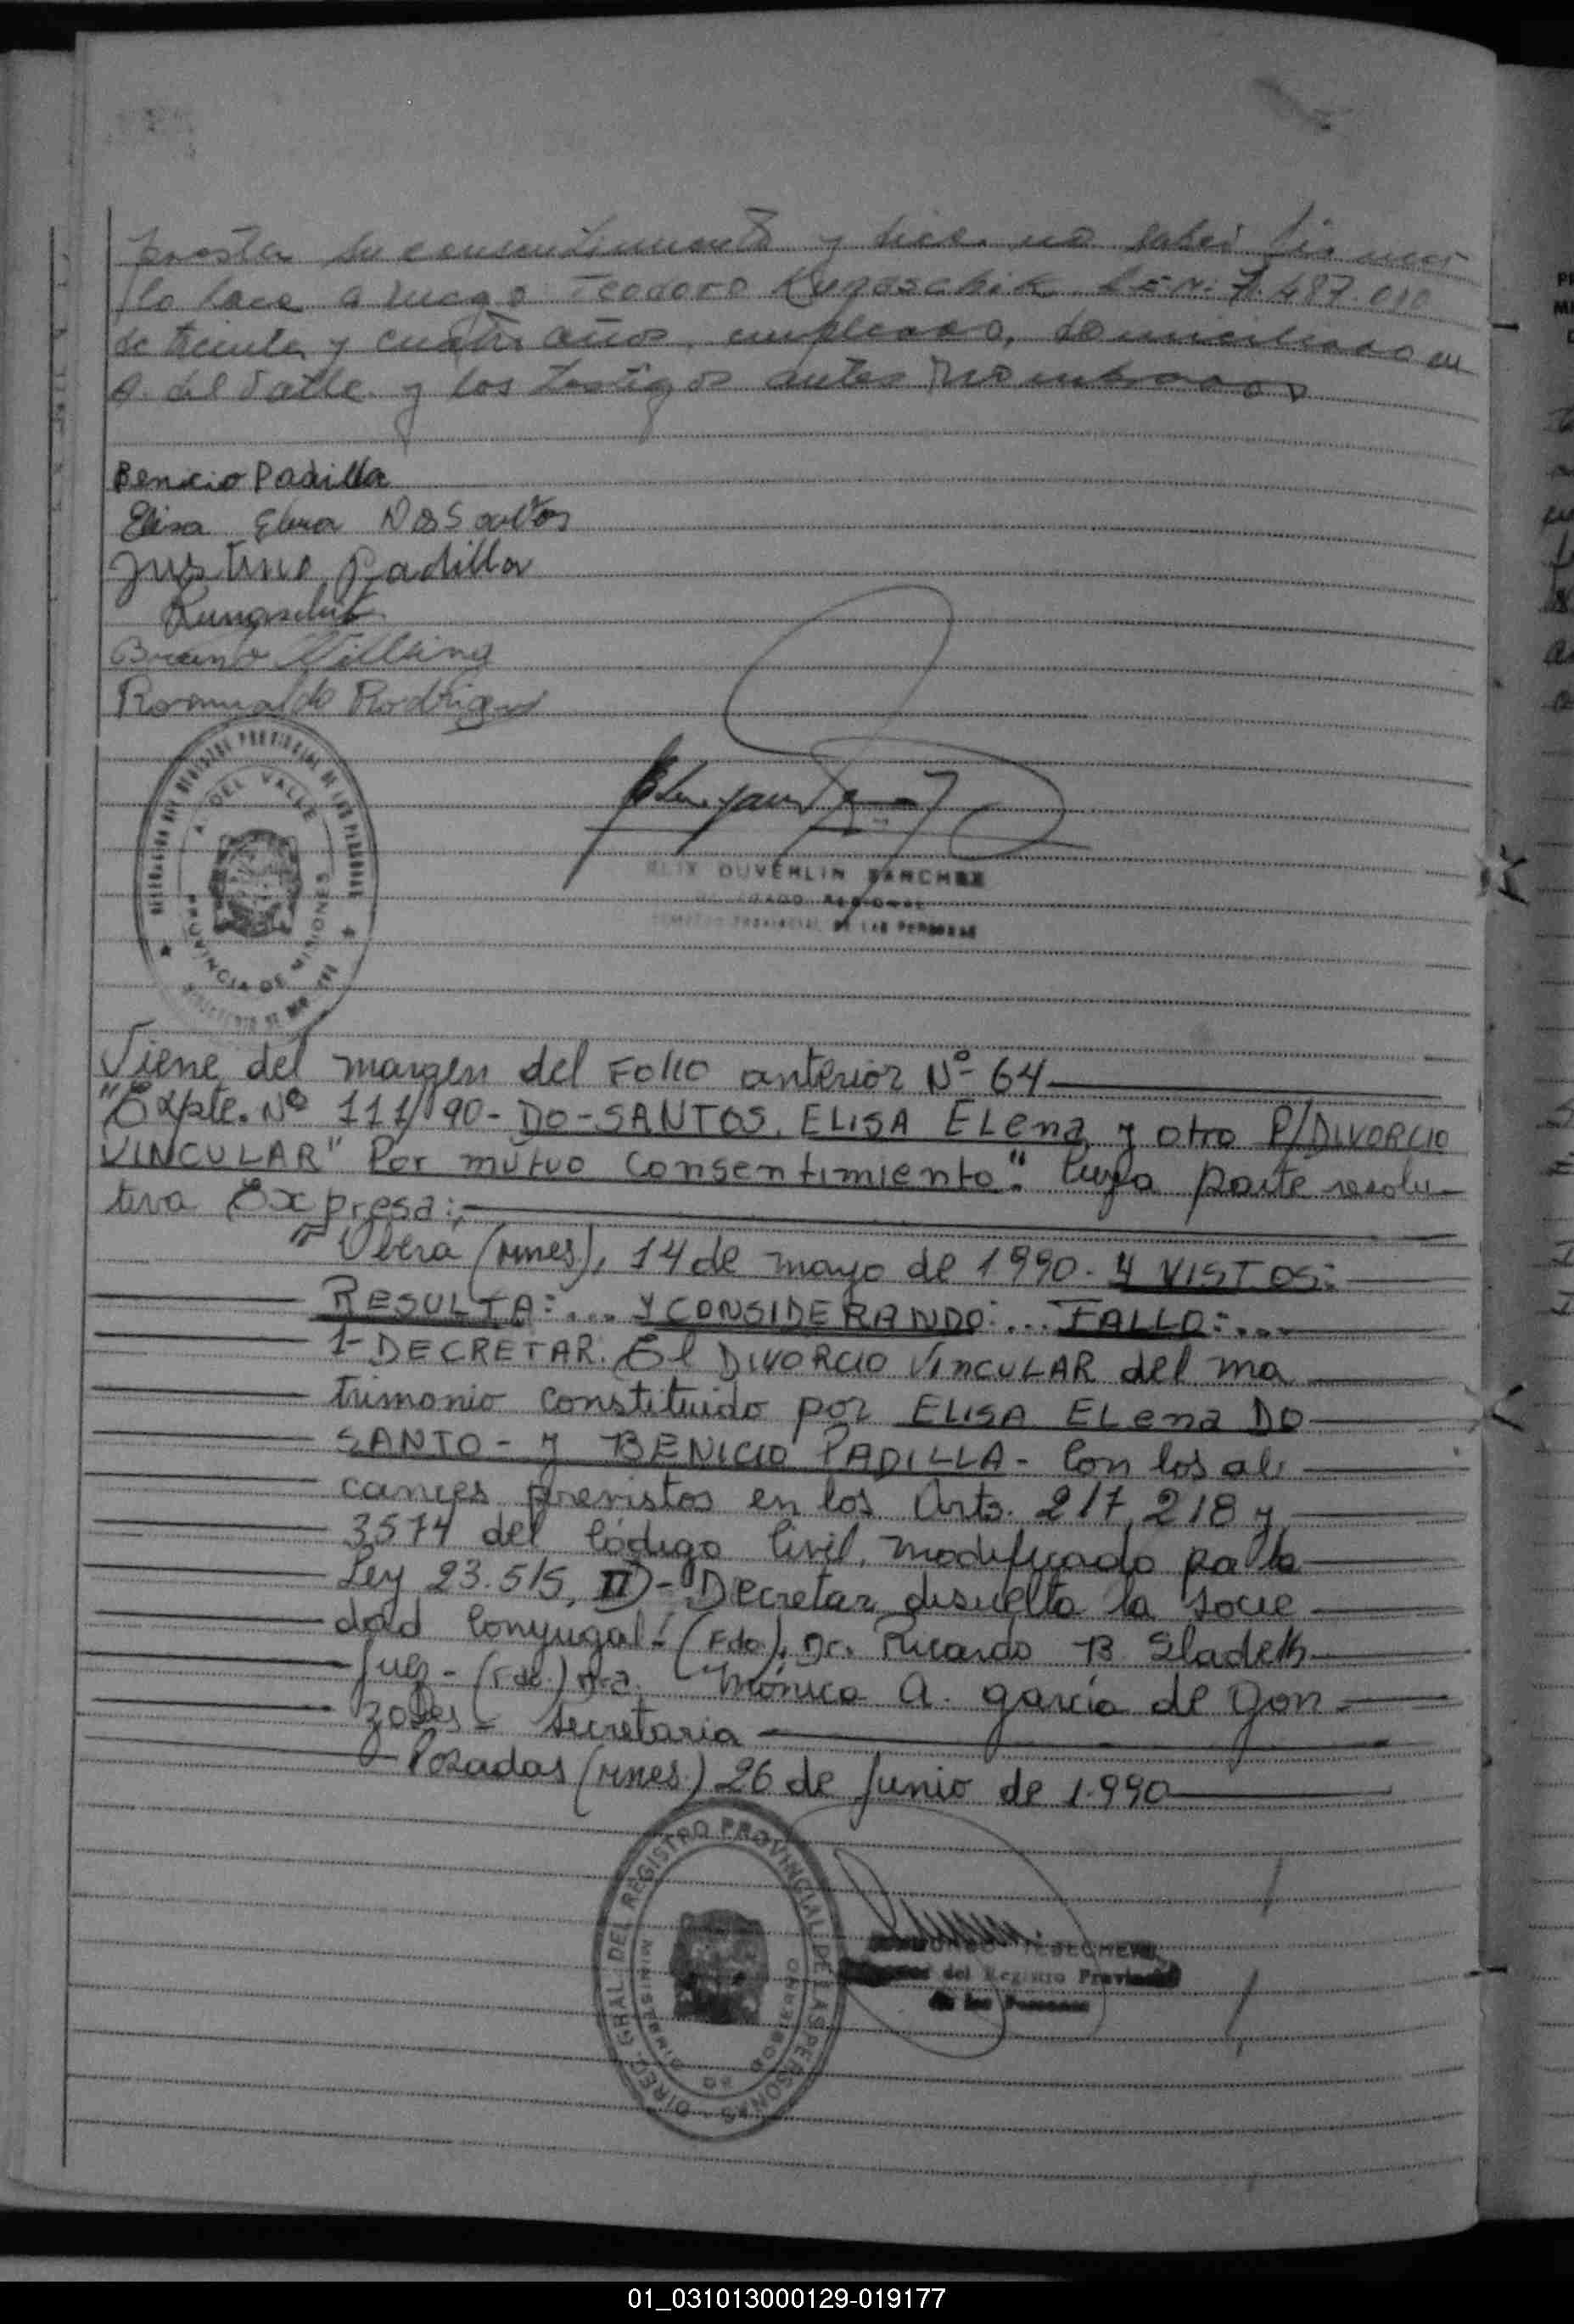 presta su consentimiento y dice no saber firmar
lo hace a ruego Teodoro Kunaschik L.E.N. 7.487.010
de treinta y cuatro años, empleado, domiciliado en
A. del Valle y los testigos antes nombrados
Benicio Padilla
Elisa Elena Dos Santos
Justino Padilla
Kunaschik
Bruno Villsing
Romualdo Rodrigues
DEL REGISTRO PROVINCIAL DE LAS PERSONAS
A. DEL VALLE
PROVINCIA DE MISIONES
DUVERLIN SANCHEZ
REGIONAL
PROVINCIAL DE LAS PERSONAS
Viene del margen del Folio anterior Nº 64
"Expte. Nº 111/90- DO-SANTOS, ELISA ELena y otro P/DIVORCIO
VINCULAR" Por mutuo Consentimiento". Cuya parte resolu-
tiva Expresa:
"Oberá (mnes), 14 de mayo de 1990. Y VISTOS:
RESULTA:... Y CONSIDERANDO:... FALLO:...
1- DECRETAR. El DIVORCIO VINCULAR del ma
trimonio constituido por ELISA ELena DO
SANTO- y BENICIO PADILLA- Con los al
cances previstos en los Arts. 217, 218 y
3574 del Código Civil, modificado por la
Ley 23.515, II)- Decretar disuelta la Socie
dad Conyugal! (Fdo). Dr. Ricardo B.
Juez- (Fdo.) Mónica A. garcía de Gon
zales- Secretaria
Posadas (mnes.) 26 de Junio de 1.990
DIREC. GRAL. DEL REGISTRO PROVINCIAL DE LAS PERSONAS
del Registro Provincial
de las Personas
01_031013000129-019177